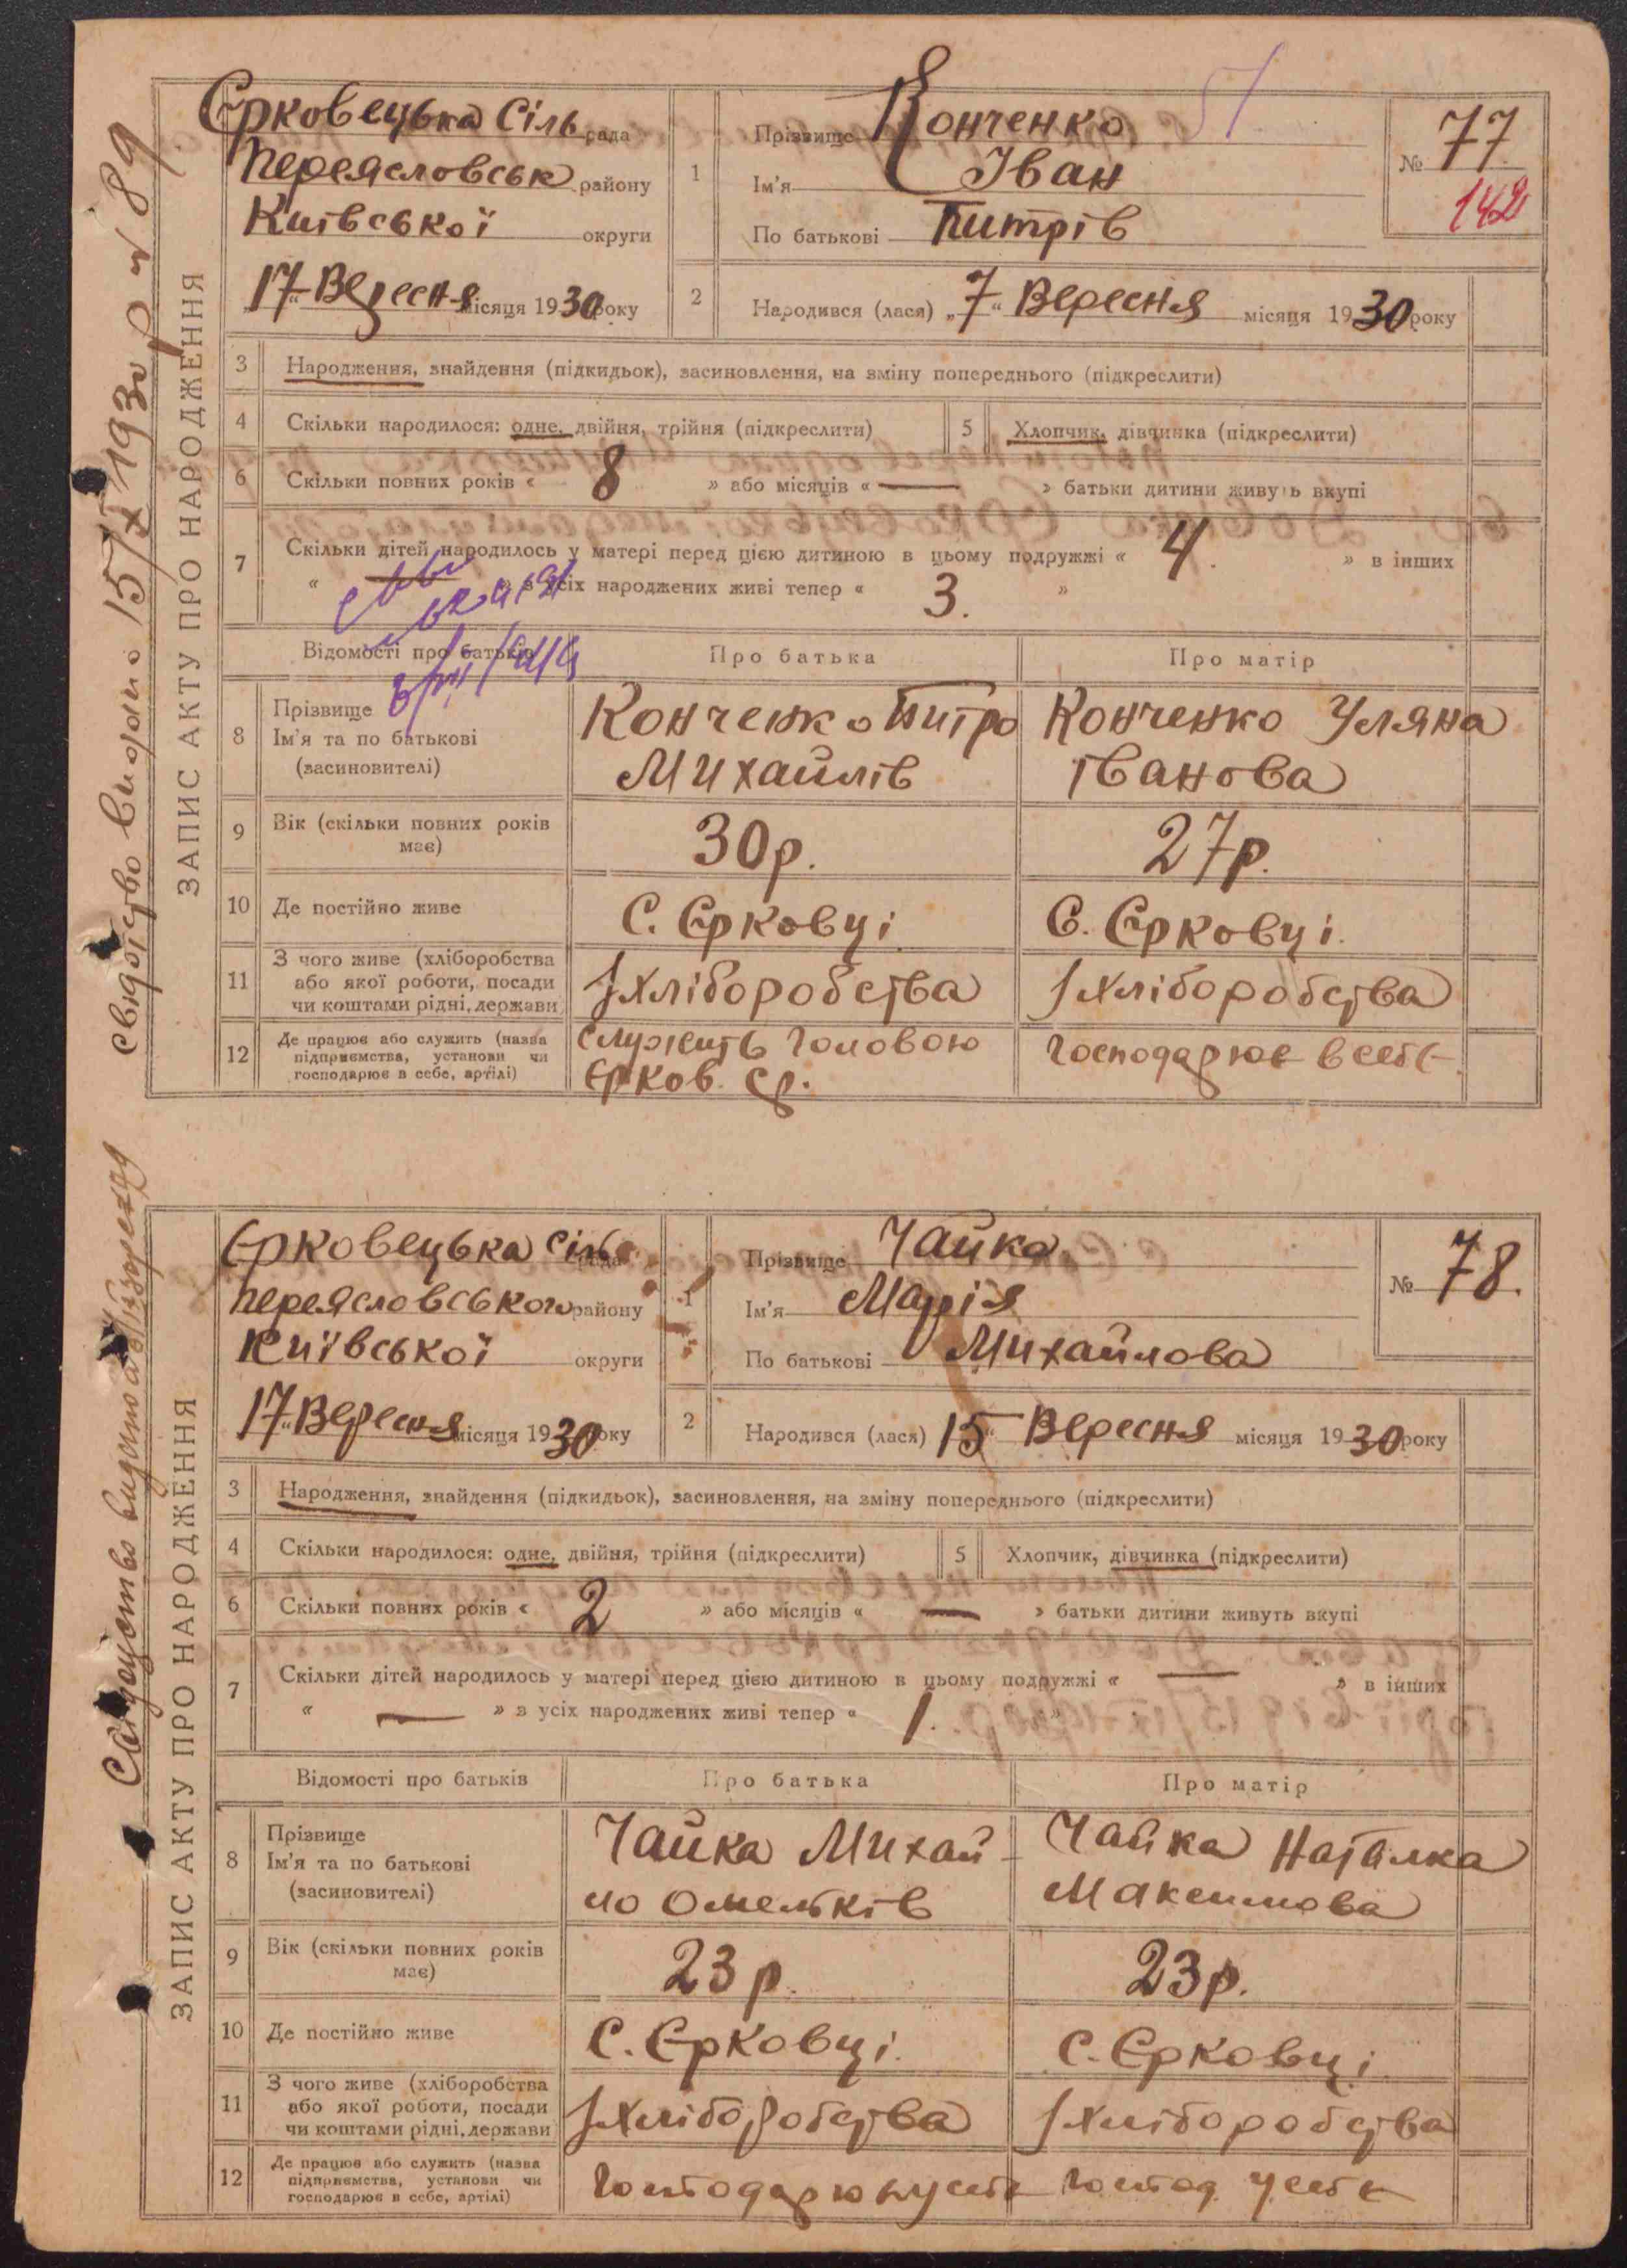 Єрковецька Сільрада
Переясловськ району
Київської округи
„17“ Вересня місяця 1930 року
1
Прізвище Конченко
Ім'я Іван
По батькові Питрів
№ 77
142
2
Народився (лася) „7“ Вересня місяця 1930 року
ЗАПИС АКТУ ПРО НАРОДЖЕННЯ
Свідоцтво видано 15/X 1930 р №89
3 Народження, знайдення (підкидьок), засиновлення, на зміну попереднього (підкреслити)
4 Скільки народилося: одне, двійня, трійня (підкреслити)
5 Хлопчик, дівчинка (підкреслити)
6 Скільки повних років « 8 » або місяців « — » батьки дитини живуть вкупі
7 Скільки дітей народилось у матері перед цією дитиною в цьому подружжі « 4. » в інших
« — » з усіх народжених живі тепер « 3. »
Відомості про батьків
Про батька
Про матір
8 Прізвище
Ім'я та по батькові
(засиновителі)
Конченко Питро
Михайлів
Конченко Уляна
Іванова
9 Вік (скільки повних років
має)
30р.
27р.
10 Де постійно живе
С. Єрковці
С. Єрковці.
11 З чого живе (хліборобства
або якої роботи, посади
чи коштами рідні, держави
З хліборобства
З хліборобства
12 Де працює або служить (назва
підприємства, установи чи
господарює в себе, артілі)
служить головою
Єрков. ср.
господарює в себе.
Єрковецька сільрада
Переясловського району
Київської округи
„17“ Вересня місяця 1930 року
1
Прізвище Чайка
Ім'я Марія
По батькові Михайлова
№ 78.
2
Народився (лася) „15“ Вересня місяця 1930 року
ЗАПИС АКТУ ПРО НАРОДЖЕННЯ
видано
3 Народження, знайдення (підкидьок), засиновлення, на зміну попереднього (підкреслити)
4 Скільки народилося: одне, двійня, трійня (підкреслити)
5 Хлопчик, дівчинка (підкреслити)
6 Скільки повних років « 2 » або місяців « — » батьки дитини живуть вкупі
7 Скільки дітей народилось у матері перед цією дитиною в цьому подружжі « — » в інших
« — » з усіх народжених живі тепер « 1. »
Відомості про батьків
Про батька
Про матір
8 Прізвище
Ім'я та по батькові
(засиновителі)
Чайка Михай-
ло Омельків
Чайка Наталка
Максимова
9 Вік (скільки повних років
має)
23р.
23р.
10 Де постійно живе
С. Єрковці.
С. Єрковці
11 З чого живе (хліборобства
або якої роботи, посади
чи коштами рідні, держави
З хліборобства
З хліборобства
12 Де працює або служить (назва
підприємства, установи чи
господарює в себе, артілі)
господ. у себе